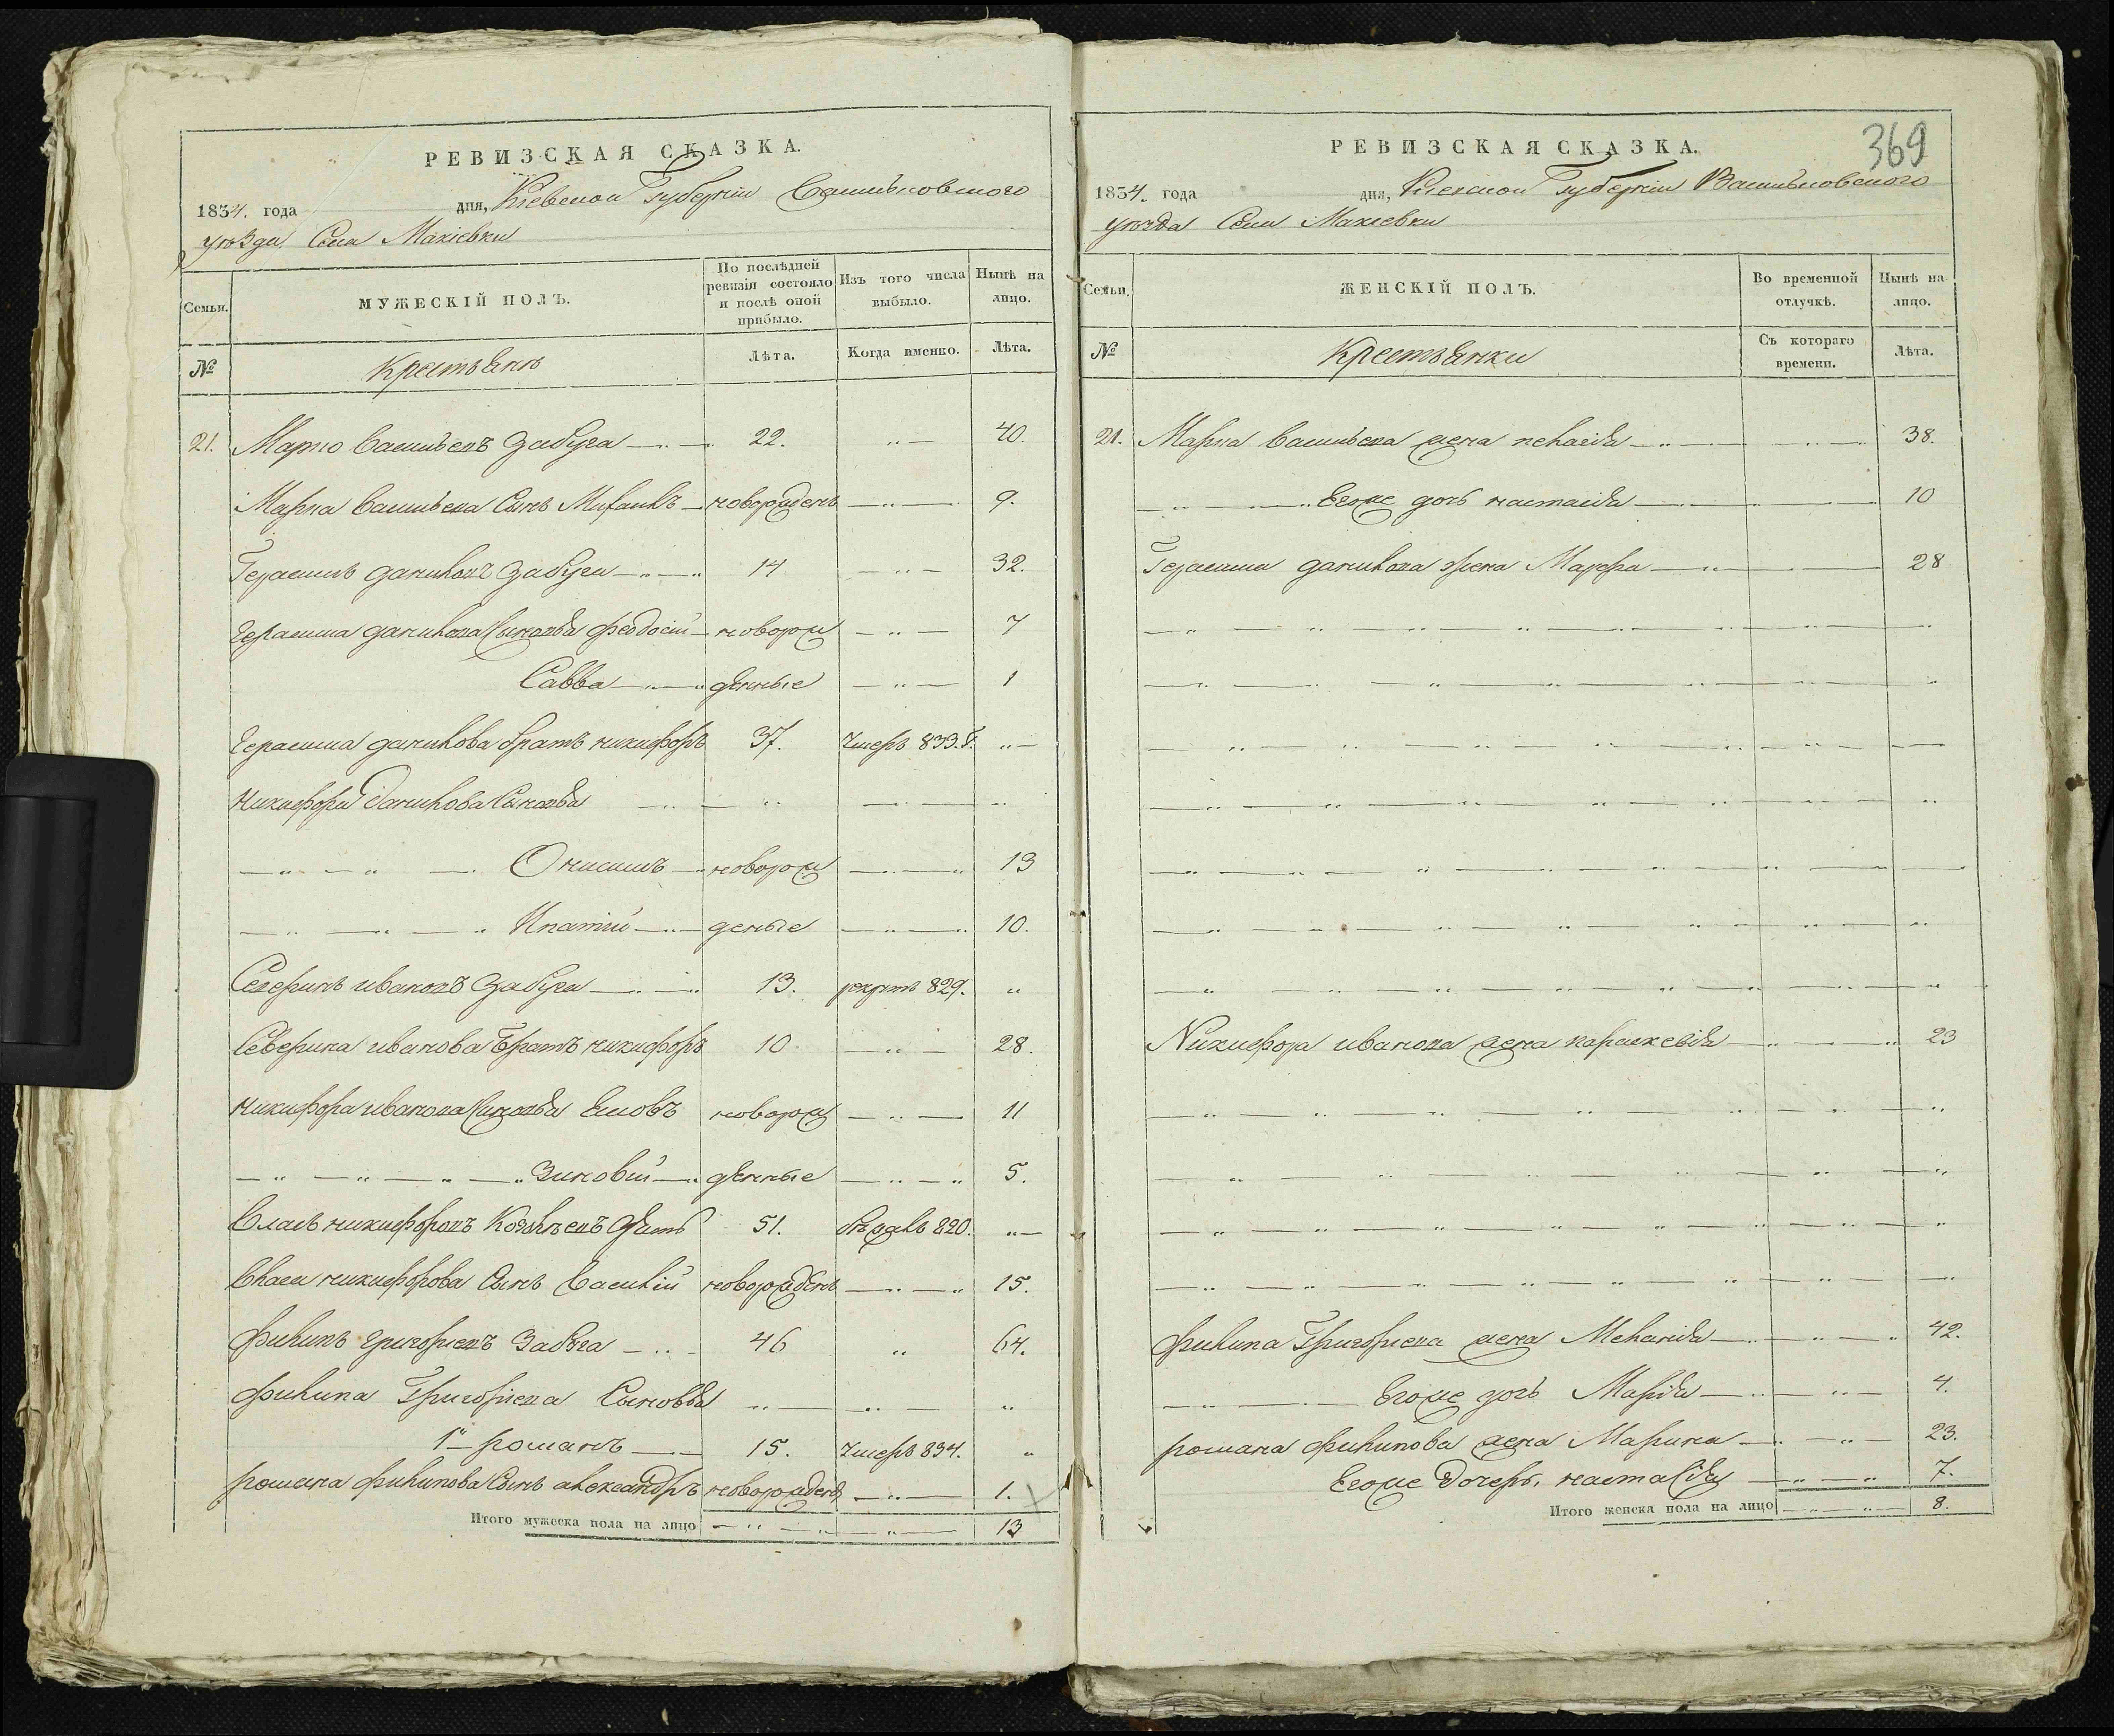 РЕВИЗСКАЯ СКАЗКА.
1834. года дня, Кіевской Губерніи Васильковского
уѣзда Села Макіевки
Семьи.
МУЖЕСКІЙ ПОЛЪ.
По послѣдней ревизіи состояло и послѣ оной прибыло.
Изъ того числа выбыло.
Нынѣ на лицо.
№
Крестьянъ
Лѣта.
Когда именно.
Лѣта.
21. Марко Васильевъ Забуга 22. 40.
Марка Васильева Сынъ Михаилъ новорожденъ 9.
Герасимъ даниловъ Забуга 14 32.
Герасима данилова Сыновья феодосій новорож 7
Савва денные 1
Герасима данилова братъ никифоръ 37. Умеръ 833. Г.
Никифора данилова Сыновья
Онисимъ новорож 13
Ипатій деные 10.
Северинъ ивановъ Забуга 13. рекрутъ 829.
Северина иванова братъ никифоръ 10 28.
никифора иванова Сыновья новорож 11
Зиновій денные 5.
Власъ никифоровъ 51. 820.
Власа никифорова Сынъ Василій новорожденъ 15.
филипъ григориевъ Забуга 46 64.
филипа Григориева Сыновья
1й романъ 15. Умеръ 834.
романа филипова Сынъ александръ новорожденъ 1.
Итого мужеска пола на лицо 13
369
РЕВИЗСКАЯ СКАЗКА.
1834. года дня, Кіевской Губерніи Васильковского
уѣзда Села Макіевки
Семьи.
ЖЕНСКІЙ ПОЛЪ.
Во временной отлучкѣ.
Нынѣ на лицо.
№
Крестьянки
Съ котораго времени.
Лѣта.
21. Марка Васильева жена пелагія 38.
Егоже дочь настасія 10
Герасима данилова жена Марфа 28
Никифора иванова жена параскевія 23
филипа Григориева жена Меланія 42.
Егоже дочь Марія 4.
романа филипова жена Марина 23.
Егоже дочерь, настасія 7.
Итого женска пола на лицо 8.